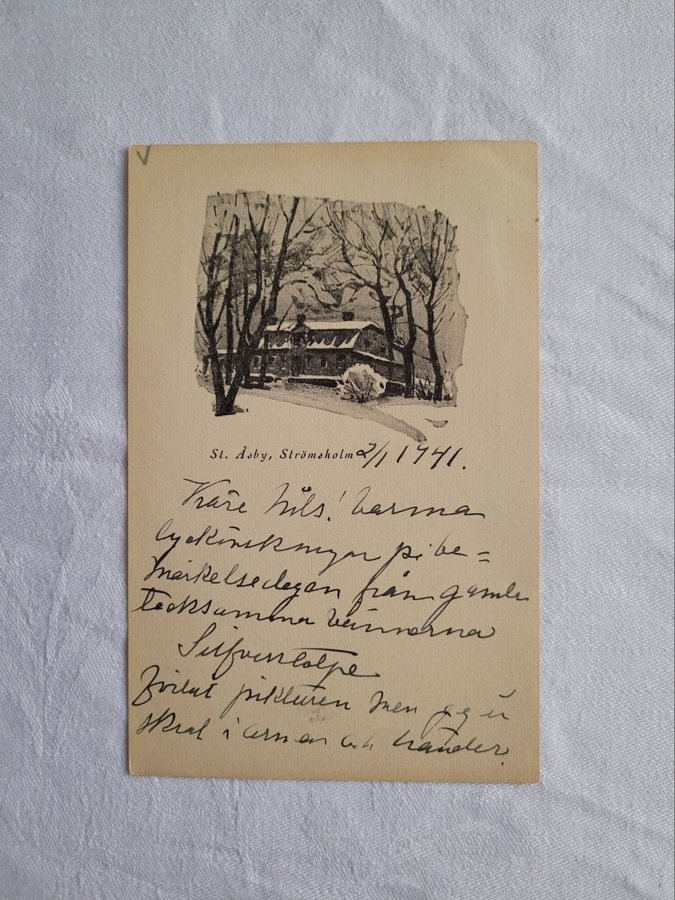 St. Åsby, Strömsholm 2/1 1941.
Käre Nils! Varma
lyckönskningar på be=
märkelsedagen från gamla
tacksamma vännerna
Silfverstolpe
pikturen men jag är
skral i armar och händer.